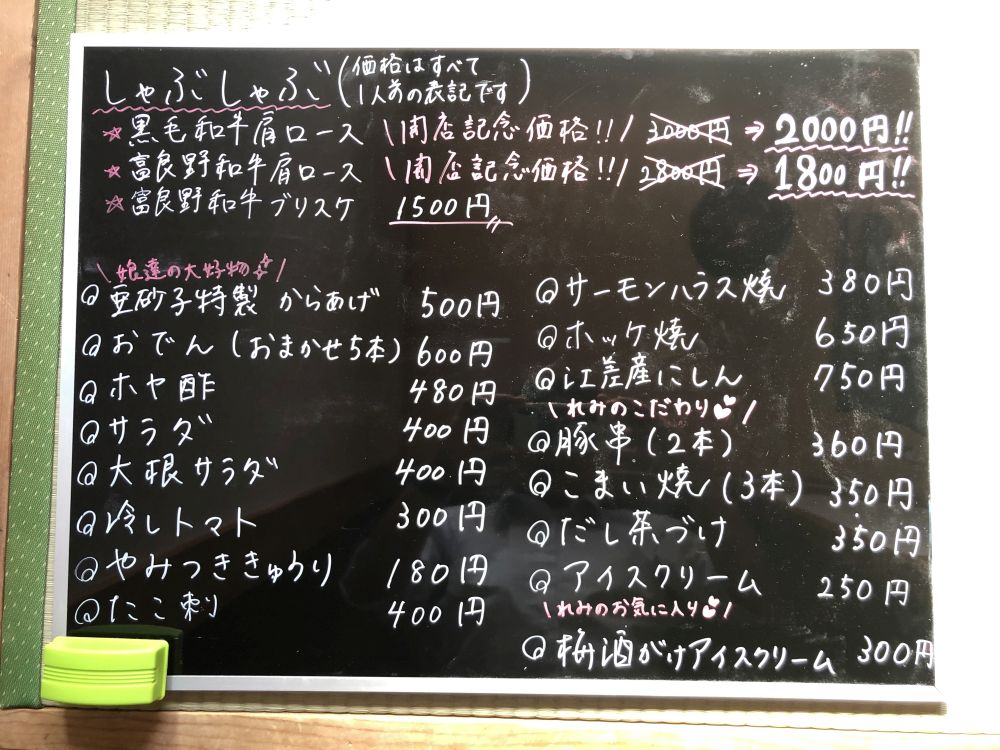 しゃぶしゃぶ(価格はすべて
1人前の表記です)
☆黒毛和牛肩ロース \開店記念価格!!/ 3000円 ⇒ 2000円!!
☆富良野和牛肩ロース \開店記念価格!!/ 2800円 ⇒ 1800円!!
☆富良野和牛ブリスケ 1500円
\娘達の大好物/
亜砂子特製 からあげ 500円
おでん(おまかせ5本) 600円
ホヤ酢 480円
サラダ 400円
大根サラダ 400円
冷しトマト 300円
やみつききゅうり 180円
たこ刺 400円
サーモンハラス焼 380円
ホッケ焼 650円
江差産にしん 750円
\れみのこだわり/
豚串(2本) 360円
こまい焼(3本) 350円
だし茶づけ 350円
アイスクリーム 250円
\れみのお気に入り/
梅酒がけアイスクリーム 300円